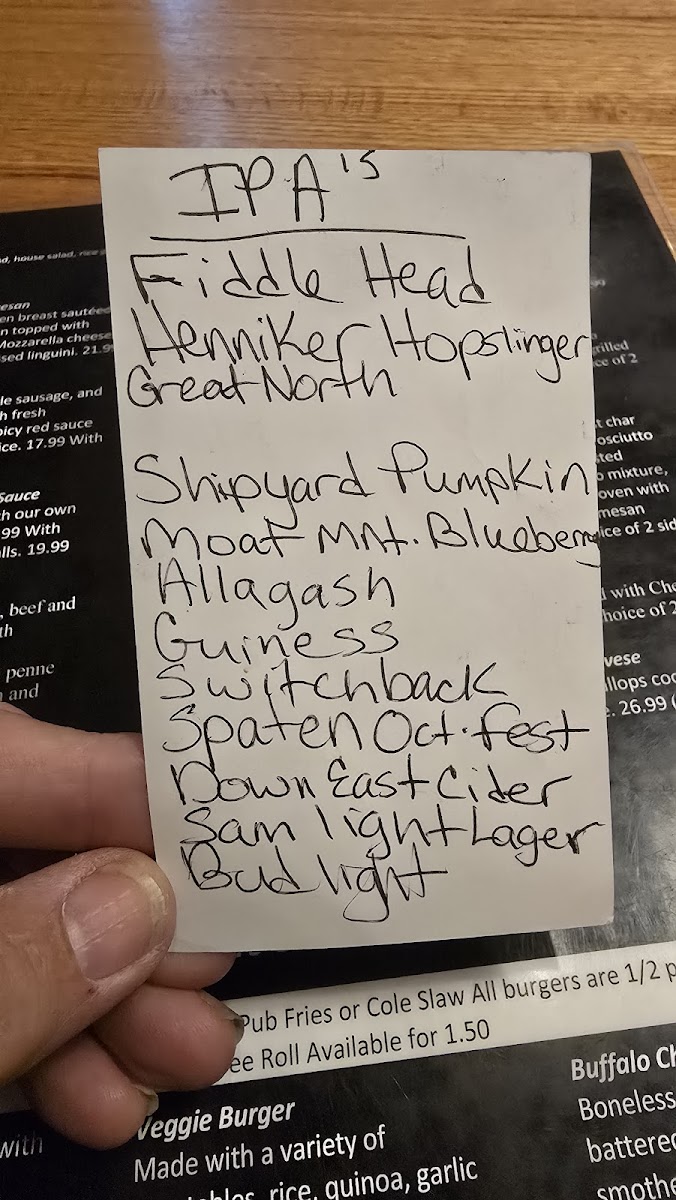 IPA's
Fiddle Head
Henniker Hopslinger
Great North
Shipyard Pumpkin
Moat Mnt. Blueberry
Allagash
Guiness
Switchback
Spaten Oct. fest
Down East Cider
Sam light Lager
Bud light
d, house salad, rice
esan
en breast sautéed
n topped with
Mozzarella cheese
sed linguini. 21.9
le sausage, and
h fresh
picy red sauce
ice. 17.99 With
Sauce
h our own
.99 With
lls. 19.99
, beef and
th
penne
and
grilled
ce of 2
t char
osciutto
ted
o mixture,
oven with
mesan
ice of 2 sid
l with Che
hoice of 2
vese
llops coo
. 26.99 (
Pub Fries or Cole Slaw All burgers are 1/2 p
ee Roll Available for 1.50
Veggie Burger
Made with a variety of
bles, rice, quinoa, garlic
with
Buffalo Ch
Boneless
battered
smothe